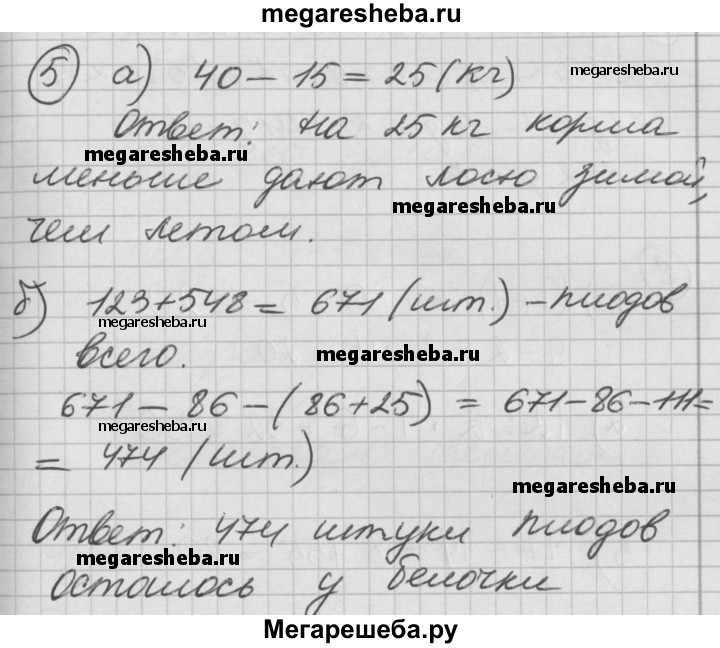 megaresheba.ru
5 а) 40 - 15 = 25 (кг)
megaresheba.ru
Ответ: на 25 кг корма
megaresheba.ru
меньше дают лосю зимой,
megaresheba.ru
чем летом.
б) 123 + 548 = 671 (шт.) - плодов
megaresheba.ru
всего.
megaresheba.ru
671 - 86 - (86 + 25) = 671 - 86 - 111 =
megaresheba.ru
= 474 (шт.)
megaresheba.ru
Ответ: 474 штуки плодов
megaresheba.ru
осталось у белочки
megaresheba.ru
Мегарешеба.ру